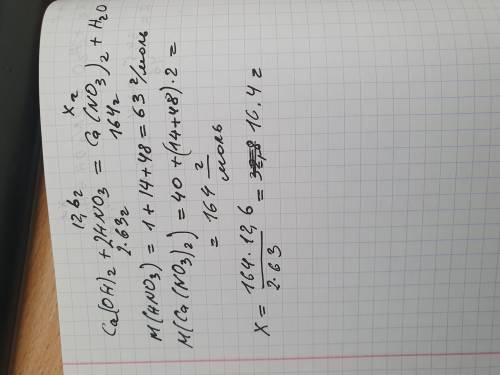 12,6г хг
Ca(OH)2 + 2HNO3 = Ca(NO3)2 + H2O
2·63г 164г
M(HNO3) = 1+14+48 = 63 г/моль
M(Ca(NO3)2) = 40 + (14+48)·2 =
= 164 г/моль
X = 164·12,6 / 2·63 = 16.4 г